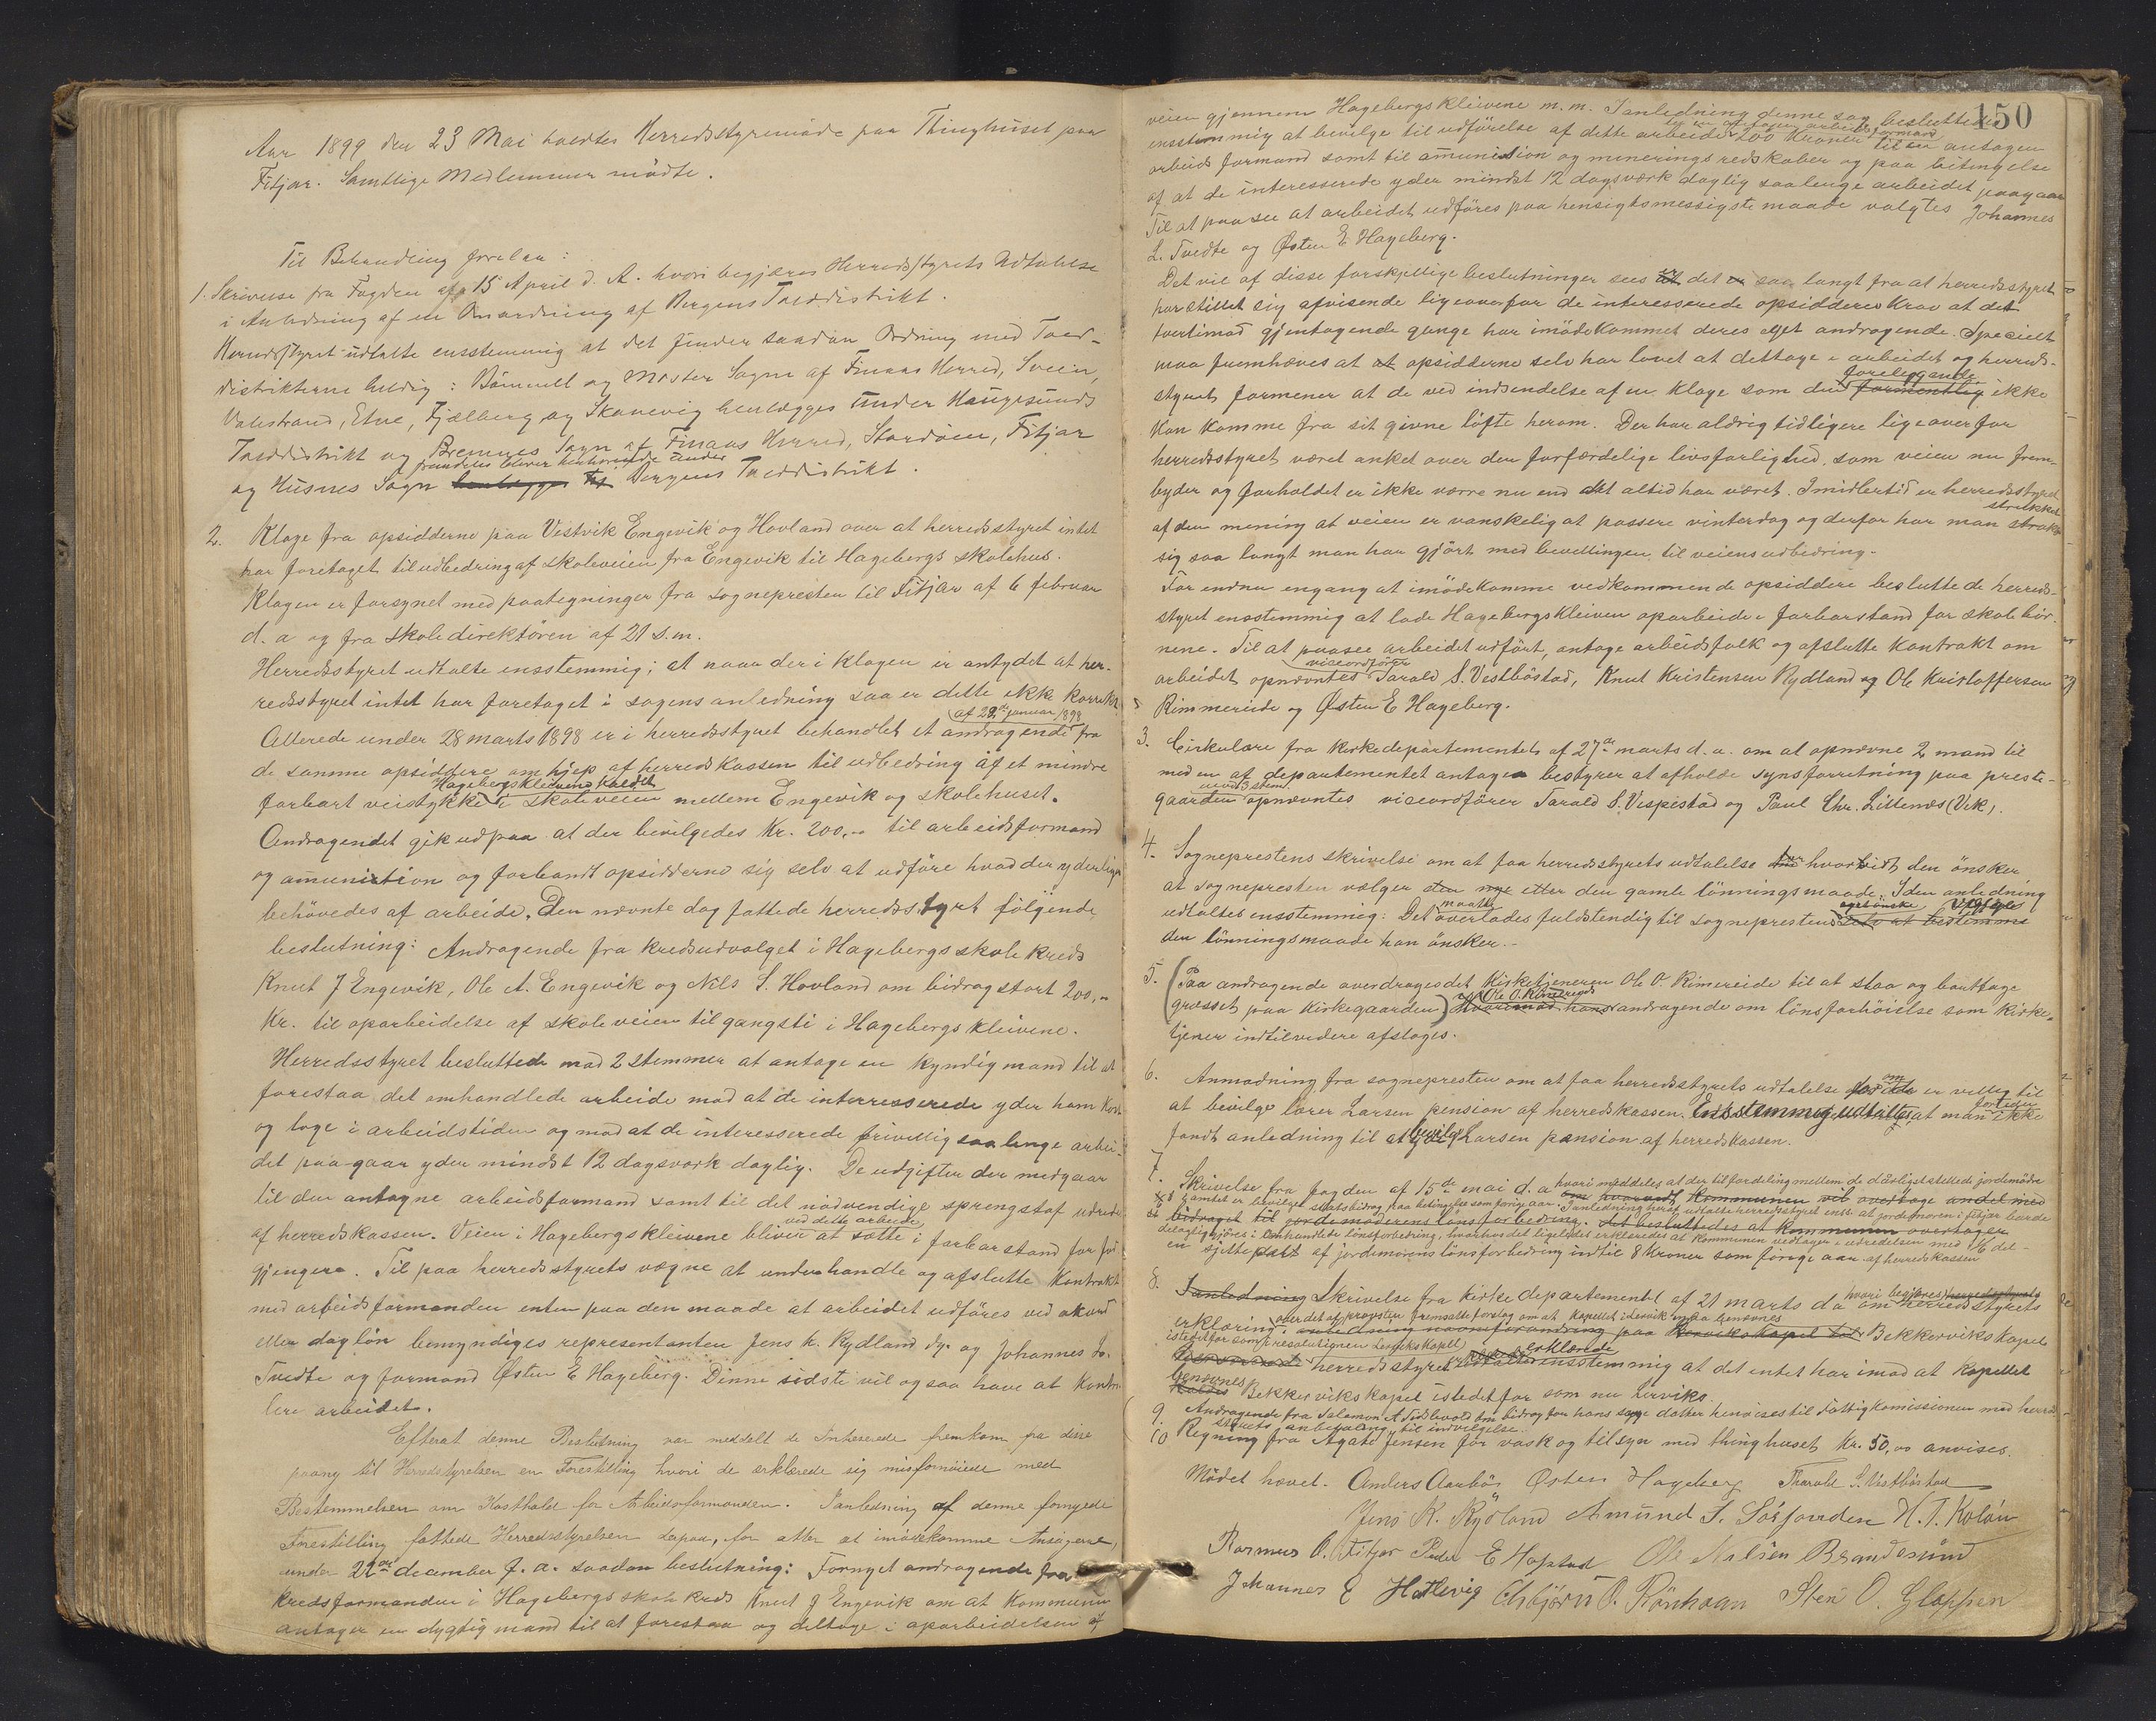 Aar 1899 den 23 Mai holdtes Herredsstyremöde paa Thinghuset paa
Fitjar. Samtlige Medlemmer mödte.
Til Behandling forelaa:
1. Skrivelse fra Fogden af 15 April d. A. hvori begjæres Herredsstyrets Udtalelse
i Anledning af en Omordning af Bergens Toldistrikt.
Herredsstyret udtalte ensstemmig at det finder saadan Ordning med Told-
distrikterne heldig: Bömmel og Moster Sogne af Finaas Herred, Sveen,
Valestrand, Etne, Fjelberg og Skonevig henlægges under Haugesunds
Tolddistrikt og Bremnes Sogn af Finaas Herred, Stordöen, Fitjar
fremdeles bliver henhörende under
og Husnes Sogn henlægges til Bergens Tolddistrikt.
2. Klage fra opsidderne paa Vestvik Engevik og Hovland over at herredsstyret intet
har foretaget til udbedring af skoleveien fra Engevik til Hagebergs skolehus.
Klagen er forsynet med paategninger fra sognepresten til Fitjar af 6 februar
d. a og fra skoledirektören af 21 s.m.
Herredsstyret udtalte ensstemmig; at naar der i klagen er antydet at her-
redsstyret intet har foretaget i sagens anledning saa er dette ikke korrekt.
af 29de januar 1898
Allerede under 28 marts 1898 er i herredsstyret behandlet et andragende fra
de samme opsiddere om hjep af herredskassen til udbedring af et mindre
Hagebergskleivene kaldet
farbart veistykke i skoleveien mellem Engevik og skolehuset.
Andragendet gik ud paa at der bevilgedes Kr. 200,- til arbeidsformand
og amunistion og forbandt opsidderne sig selv at udföre hvad der yderligere
behövedes af arbeide. Den nævnte dag fattede herredsstyret fölgende
beslutning: Andragende fra kredsudvalget i Hagebergs skolekreds
Knut J Engevik, Ole A. Engevik og Nils S. Hovland om bidrag stort 200,-
Kr. til oparbeidelse af skoleveien til gangsti i Hagebergs kleivene.
Herredsstyret besluttede mod 2 stemmer at antage en kyndig mand til at
forestaa det omhandlede arbeide mod at de interresserede yder ham kost
og loge i arbeidstiden og mod at de interesserede frivillig saa lenge arbei-
det paagaar yder mindst 12 dagsværk daglig. De udgifter der medgaar
til den antagne arbeidsformand samt til det nödvendige sprengstof udredes
ved dette arbeide
af herredskassen. Veien i Hagebergskleivene bliver at sætte i farbar stand for fod
gjengere. Til paa herredsstyrets vægne at underhandle og afslutte kontrakt
med arbeidsformanden enten paa den maade at arbeidet udföres ved akord
eller daglön bemyndiges representanten Jens K. Rydland og Johannes L.
Tvedte og formand Østen E Hageberg. Denne sidste vil ogsaa have at kontro-
lere arbeidet.
Efterat denne Beslutning var meddelt de Interesserede fremkom fra disse
paany til Herredsstyrelsen en Forestilling hvori de erklærede sig misfornöiede med
Bestemmelsen om Kosthold for Arbeidsformanden. I anledning af denne fornyede
Forestilling fattede Herredsstyrelsen derpaa, for atter at imödekomme Ansögerne,
under 22de december f. a. saadan beslutning: Fornyet andragende fra
kredsformanden i Hagebergs skolekreds Knut J Engevik om at kommunen
antager en dygtig mand til at forestaa og deltage i oparbeidelsen af
150
veien gjennem Hagebergs kleivene m. m. I anledning denne sag besluttedes
ensstemmig at bevilge til udförelse af dette arbeide 200 kroner til en antagen
arbeidsformand samt til amunistion og mineringsredskaber og paa betingelse
af at de interesserede yder mindst 12 dagsværk daglig saalenge arbeidet paagaar
Til at paasee at arbeidet udföres paa hensigtsmessigste maade valgtes Johannes
L. Tvedte og Østen E Hageberg.
Det vil af disse forskjellige beslutninger sees at det er saa langt fra at herredsstyret
har stillet sig afvisende ligeoverfor de interesserede opsidderes krav at det
tvertimod gjentagende gange har imödekommet deres eget andragende. Specielt
maa fremhæves at opsidderne selv har lovet at deltage i arbeidet og herreds-
foreliggende
styret formener at de ved indsendelse af en klage som den formentlig ikke
kan komme fra sit givne löfte herom. Der har aldrig tidligere ligeoverfor
herredsstyret været anket over den forfærdelige livsfarlighed, som veien nu frem-
byder og forholdet er ikke værre nu end det altid har været. Imidlertid er herredsstyret
strækket
af den mening at veien er vanskelig at passere vinterdag og derfor har man strakt
sig saa langt man har gjört med bevillingen til veiens udbedring.
For endnu engang at imödekomme vedkommende opsiddere besluttede herreds-
styret ensstemmig at lade Hagebergskleiven oparbeide i farbar stand for skolebör-
nene. Til at paasee arbeidet udfört, antage arbeidsfolk og afslutte kontrakt om
viceordförer
arbeidet opnævntes Tarald S. Vestböstad, Knut Kristensen Rydland og Ole Kristoffersen
Rimmereide og Østen E Hageberg.
3. Cirkulære fra kirkedepartementet af 27de marts d. a. om at opnævne 2 mand til
med en af departementet antagen bestyrer at afholde synsforretning paa preste-
gaarden opnævntes viceordförer Tarald S. Vespestad og Paul Chr. Littenes (Vik).
4. Sogneprestens skrivelse om at faa herredsstyrets udtalelse hvorvidt den önsker
at sognepresten vælger den nye eller den gamle lönningsmaade. I den anledning
maatte eget önske
udtaltes ensstemmig: Det overlades fuldstendig til sognepresten selv at bestemme
den lönningsmaade han önsker.-
5. (Paa andragende overdroges det kirketjeneren Ole O. Rimereide til at slaa og borttage
Ole O. Rimereids
græsset paa kirkegaarden) hvorimod hans andragende om lönsforhöielse som kirke-
tjener indtilvidere afsloges.
6. Anmodning fra sognepresten om at faa herredsstyrets udtalelse om det er villig til
for tiden
at bevilge lærer Larsen pension af herredskassen. Ensstemmig udtaltes, at man ikke
fandt anledning til at bevilge Larsen pension af herredskassen.
7. Skrivelse fra fogden af 15de mai d. a hvori meddeles at der til fordeling mellem de dårligst stellede jordemödre
om hvorvidt kommunen vil overtage andel med
i amtet er bevilget statsbidrag paa betingelse som forrige aar. I anledning heraf udtalte herredsstyret enss. at jordemoren i Fitjar burde
bidraget til jordemoderens lönsforbedring. Det besluttedes at kommunen overtager
delagtiggjöres i omhandlede lönsforbedring, hvorhos det ligeledes erklæredes at kommunen vedtager i udredelsen med 1/6 del -
en sjette part af jordemorens lönsforbedring indtil 8 kroner som forrige aar af herredskassen
8. I anledning Skrivelse fra kirkedepartementet af 21 marts d a hvori begjæres om herredsstyrets
erklæring over det af provsten fremsatte forslag om at kapellet i Lervik maa benævnes
anledning navneforandring paa Lerviks kapel til Bekkerviks kapel
istedetfor som i resolutionen Lerviks kapel
erklærede
herredsstyret udtalte ensstemmig at det intet har imod at kapellet
benævnes
kaldes Bekkerviks kapel istedetfor som nu Lerviks.
9. Andragende fra Salomon A Tislevold om bidrag for hans syge datter henvises til Fattigkomissionen med herreds
styrets anbefaling til indvilgelse.
10 Regning fra Agate Jensen for vask og tilsyn med thinghuset Kr. 50,00 anvises.
Mödet hævet. Anders Aarbö, Østen Hageberg Tharald S. Vestböstad
Jens K. Rydland Amund T. Sörfonden H. T. Koløen
Rasmus O. Fitjar Peder E Hopstad Ole Nilsen Brandesund
Johannes E Hatlevig Esbjörn O. Rönhaan Sten O. Gloppen